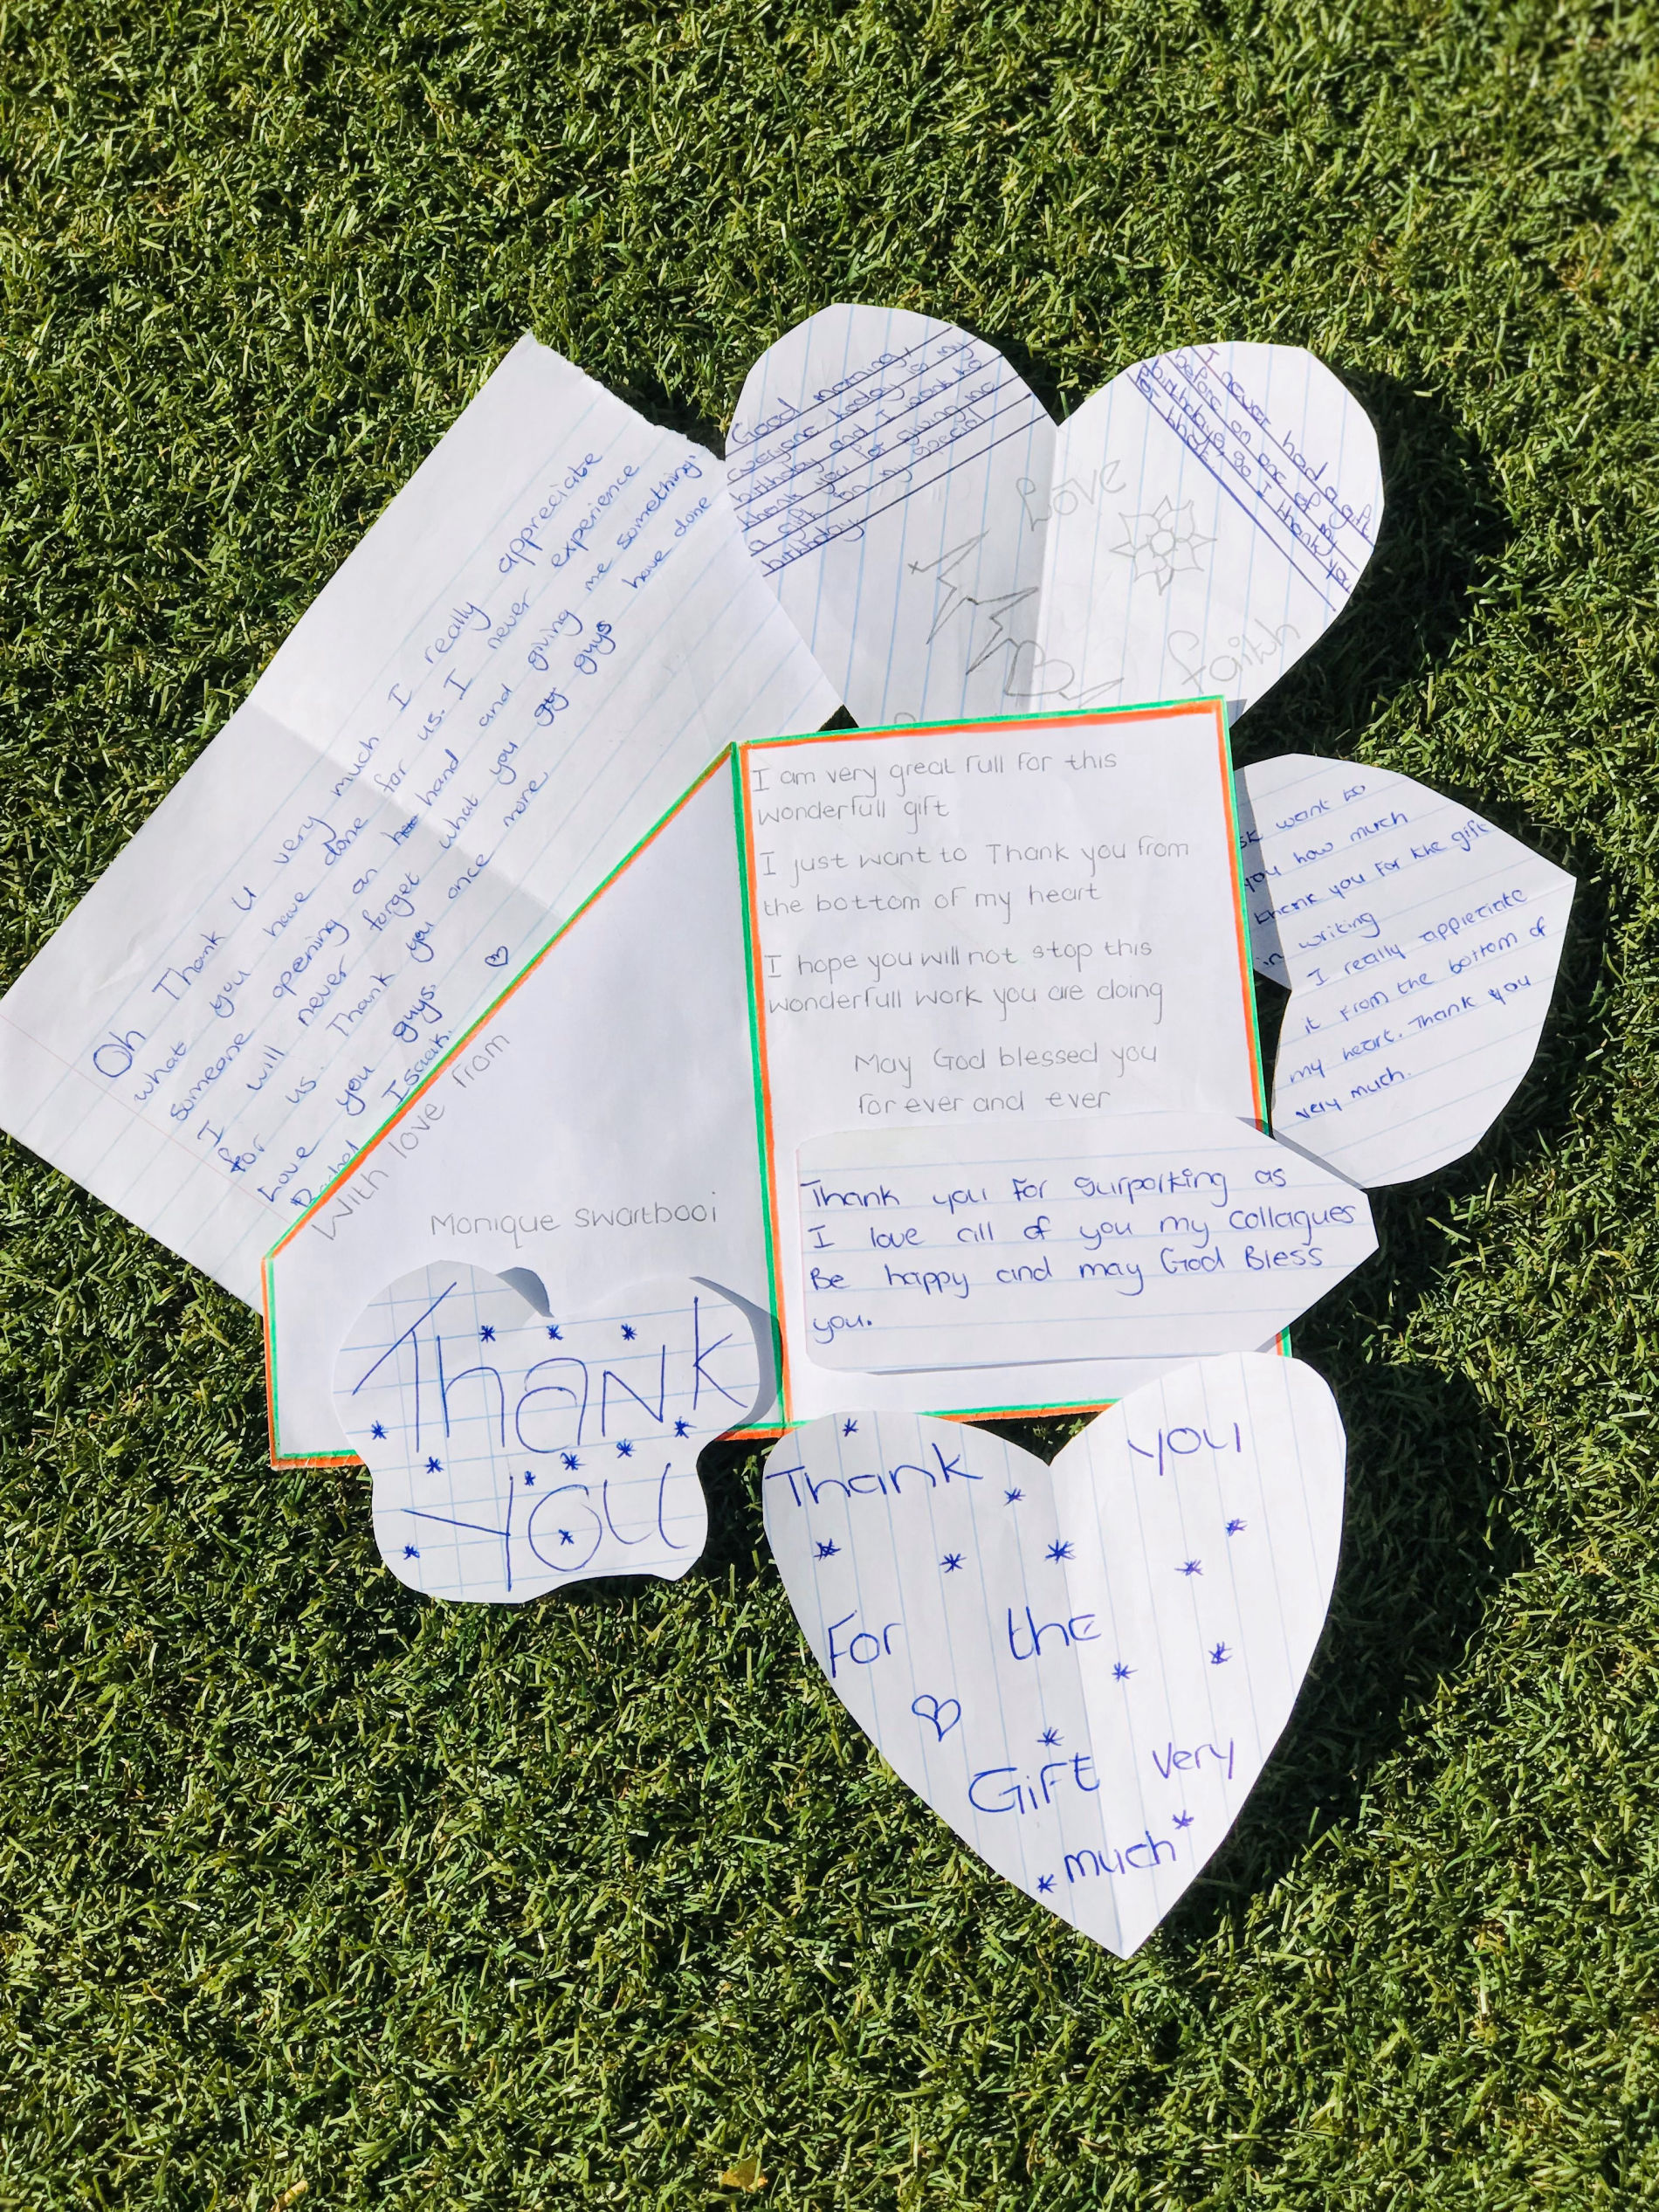 Oh Thank u very much I really appreciate
what you have done for us. I never experience
someone opening an hand and giving me something
I will never forget what you guys have done
for us. Thank you once more
Love you guys.
Rachel Isaack.
Good morning,
everyone today is my
birthday and I want to
thank you for giving me
a gift on my special
birthday
I never had a gift
before on one of my
birthdays, so I thank you
for that.
Love
faith
I am very great full for this
wonderfull gift
I just want to Thank you from
the bottom of my heart
I hope you will not stop this
wonderfull work you are doing
May God blessed you
for ever and ever
With love from
Monique Swartbooi
want to
you how much
thank you for the gift
in writing
I really appieciate
it from the bottom of
my heart. Thank you
very much.
Thank you for surporking as
I love all of you my collagues
Be happy and may God Bless
you.
Thank
you
Thank you
For the
Gift very
much